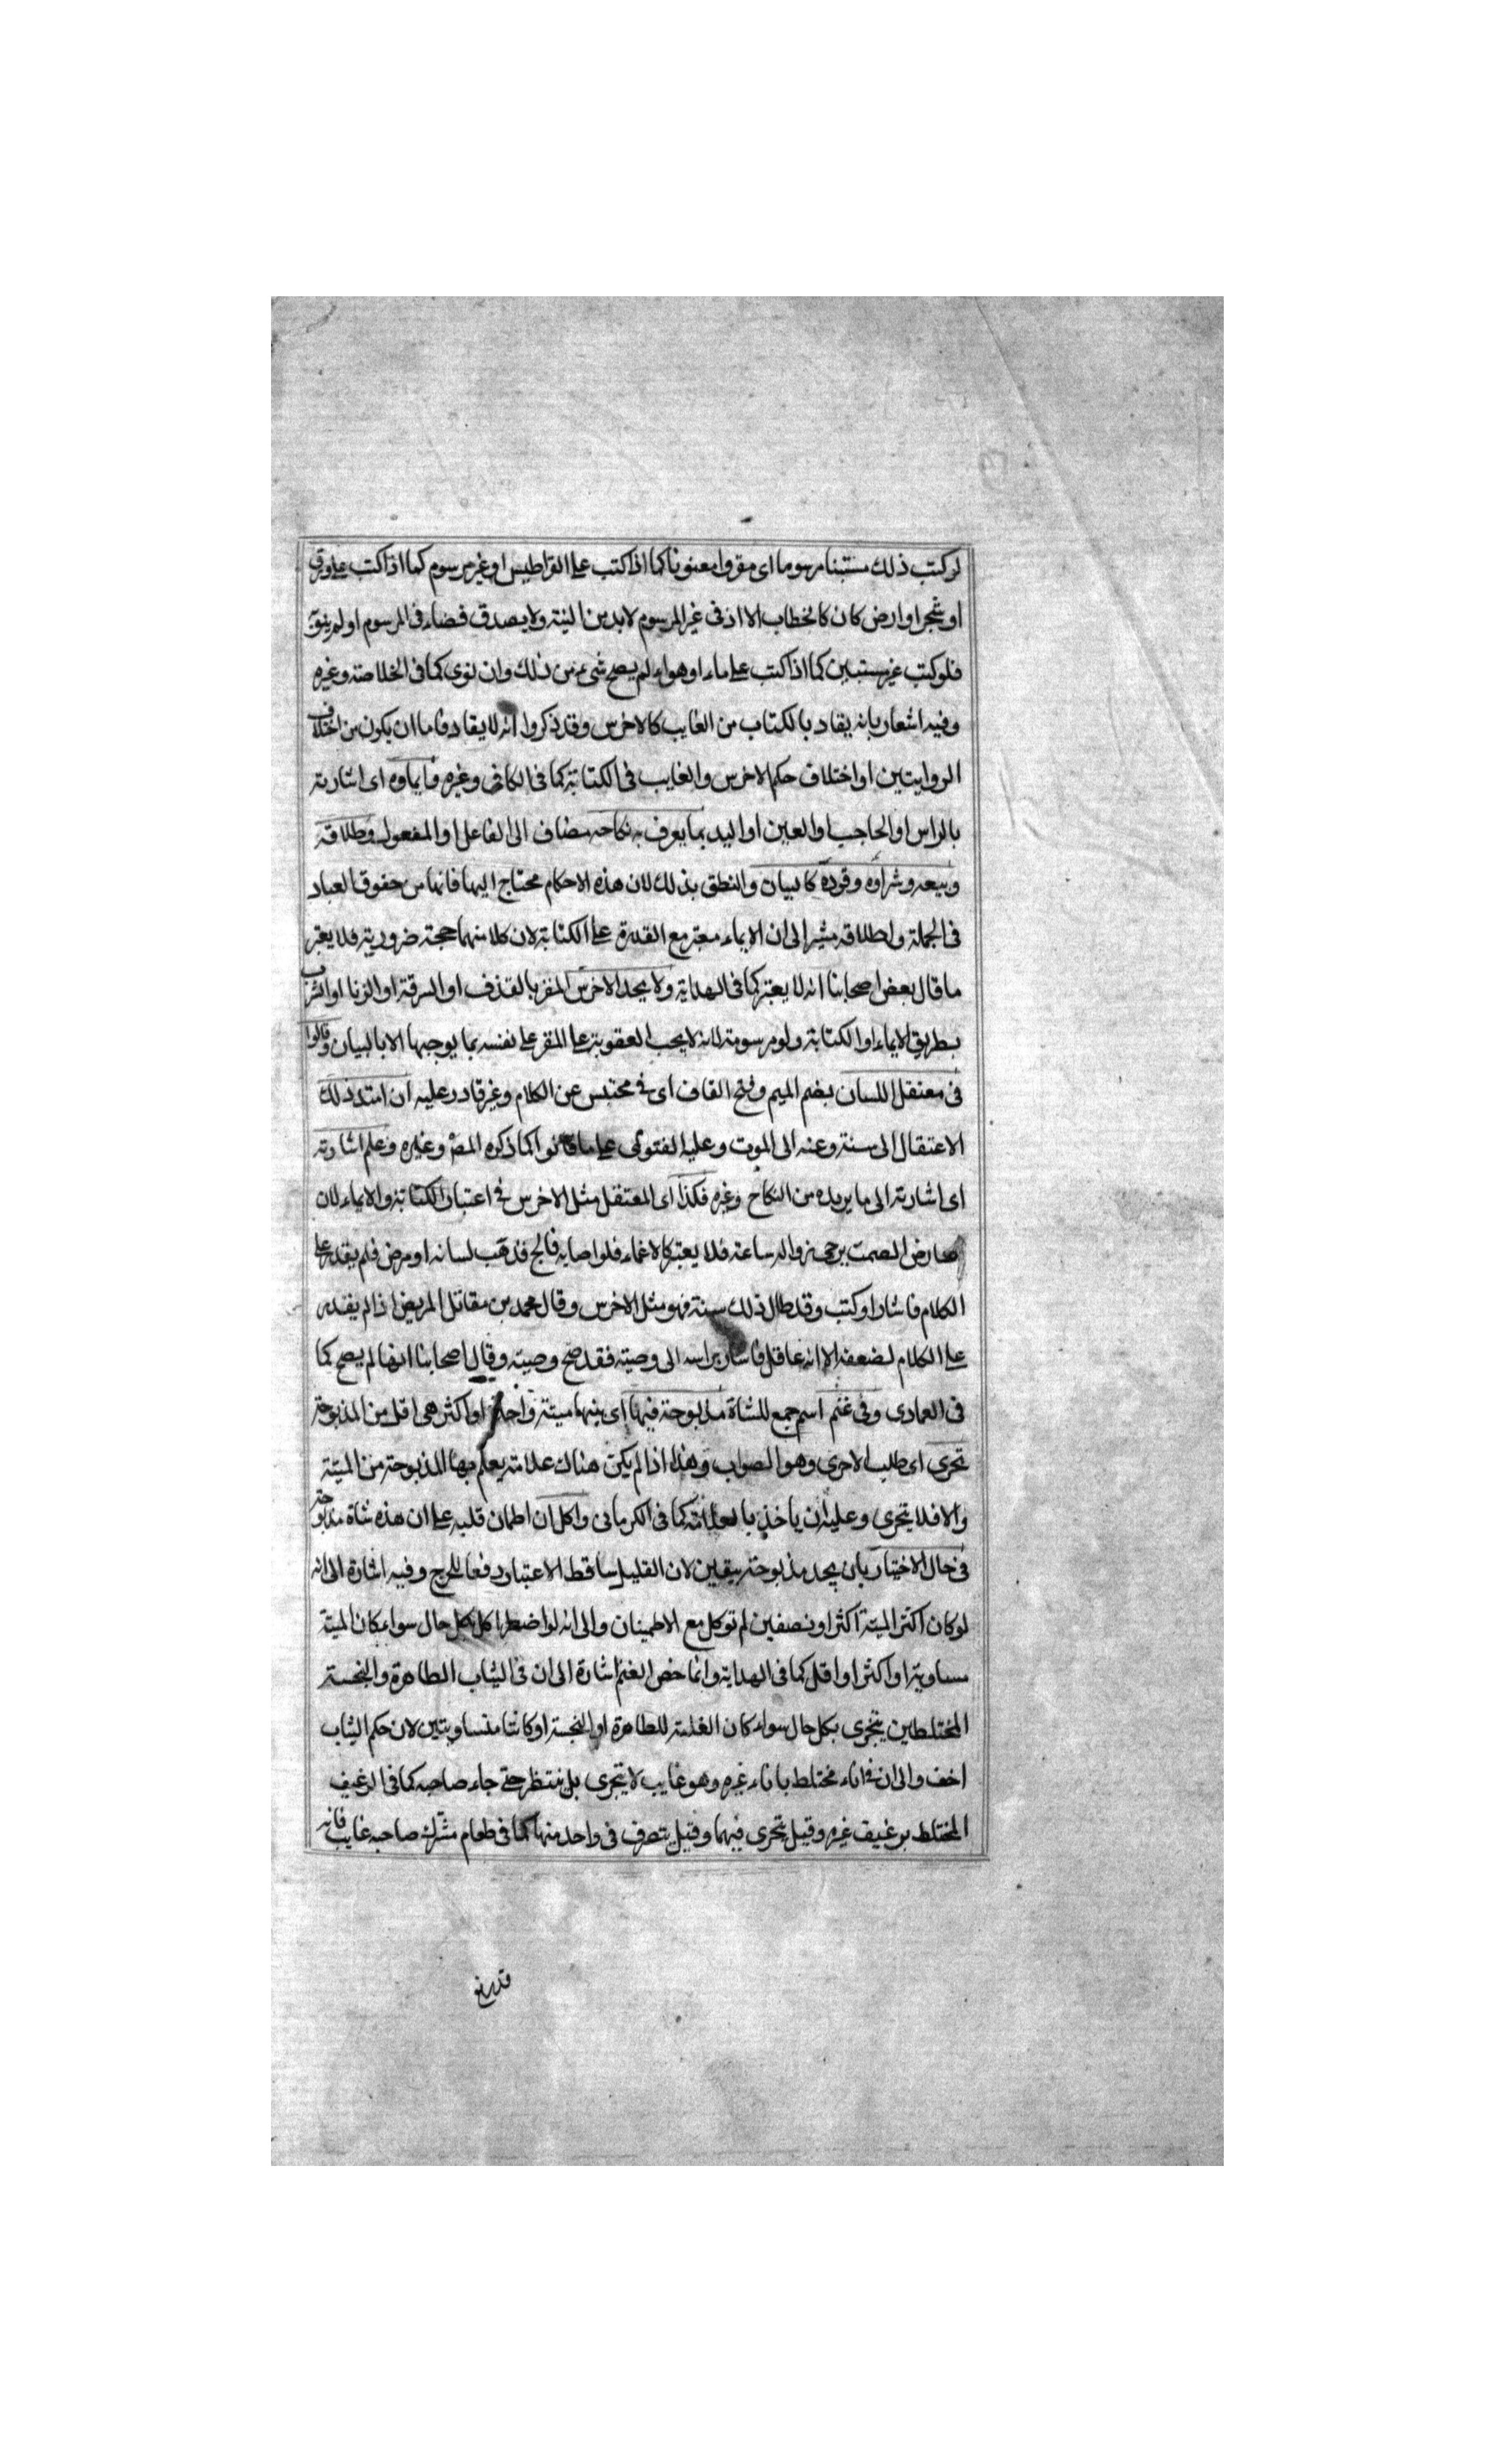 لو كتب ذلك مستبنا مرسوما اى مقروا معنونا كما اذا كتب على القراطيس او غير مرسوم كما اذا كتب على ورق
او شجر او ارض كان كالخطاب الا اذ فى غير المرسوم لابد من النية ولا يصدق قضاء فى المرسوم او لم ينو
فلو كتب غير مستبين كما اذا كتب على ماء او هواء لم يصح شئ من ذلك وان نوى كما فى الخلاصة وغيره
وفيه اشعار بانه يقاد بالكتاب من الغايب كالاخرس وقد ذكروا انه لا يقاد فاما ان يكون من اختلاف
الروايتين او اختلاف حكم الاخرس والغايب فى الكتابة كما فى الكافى وغيره وايماؤه اى اشارته
بالراس او الحاجب او العين او اليد بما يعرف به نكاحه مضاف الى الفاعل او المفعول وطلاقه
وبيعه وشراوه وقوده كالبيان والنطق بذلك لان هذه الاحكام محتاج اليها فانها من حقوق العباد
فى الجملة واطلاقه مشير الى ان الايماء معتبر مع القدرة على الكتابة لان كلا منهما حجة ضرورية فلا يعتبر
ما قال بعض اصحابنا انه لا يعتبر كما فى الهداية ولا يحد الاخرس المقر بالقذف او السرقة او الزنا او الشرب
بطريق الايماء او الكتابة ولو مرسومة لانه لا يجب العقوبة على المقر على نفسه بما يوجبها الا بالبيان وقالوا
فى معتقل اللسان بضم الميم وفتح القاف اى فى محتبس عن الكلام وغير قادر عليه ان امتد ذلك
الاعتقال الى سنة وعنه الى الموت وعليه الفتوى على ما قالوا كما ذكره المص وغيره وعلم اشارته
اى اشارته الى ما يريده من النكاح وغيره فكذا اى المعتقل مثل الاخرس فى اعتبار الكتابة والايماء لان
عارض الصمت يرجى زواله ساعة فلا يعتبر كالاغماء فلو اصابه فالج فذهب لسانه او مرض فلم يقدر على
الكلام فاشار او كتب وقد طال ذلك سنة فهو مثل الاخرس وقال محمد بن مقاتل المريض اذا لم يقدر
على الكلام لضعفه الا انه عاقل فاشار براسه الى وصيته فقد صح وصيته وقال اصحابنا انها لم يصح كما
فى العمادى وفى غنم اسم جمع للشاة مذبوحة فيها اى بينها ميتة واحدة او اكثر هى اقل من المذبوحة
تحرى اى طلب الاحرى وهو الصواب وهذا اذا لم يكن هناك علامة يعلم بها المذبوحة من الميتة
والا فلا يتحرى وعليه ان ياخذ بالعلامة كما فى الكرمانى واكل ان اطمان قلبه على ان هذه شاة مذبوحة
فى حال الاختيار بان يجد مذبوحة بيقين لان القليل ساقط الاعتبار دفعا للحرج وفيه اشارة الى انه
لو كان اكثر الميتة اكثر او نصفين لم توكل مع الاطمينان والى انه لو اضطر اكل بكل حال سواء كان الميتة
مساوية او اكثر او اقل كما فى الهداية وانما خص الغنم اشارة الى ان فى الثياب الطاهرة والنجسة
المختلطين يتحرى بكل حال سواء كان الغلبة للطاهرة او النجسة او كانتا متساويتين لان حكم الثياب
اخف والى ان فى اناء مختلط باناء غيره وهو غايب لا يتحرى بل ينتظر حتى جاء صاحبه كما فى الرغيف
المختلط برغيف غيره وقيل يتحرى فيهما وقيل يتصرف فى واحد منها كما فى طعام مشترك صاحبه غايب فانه